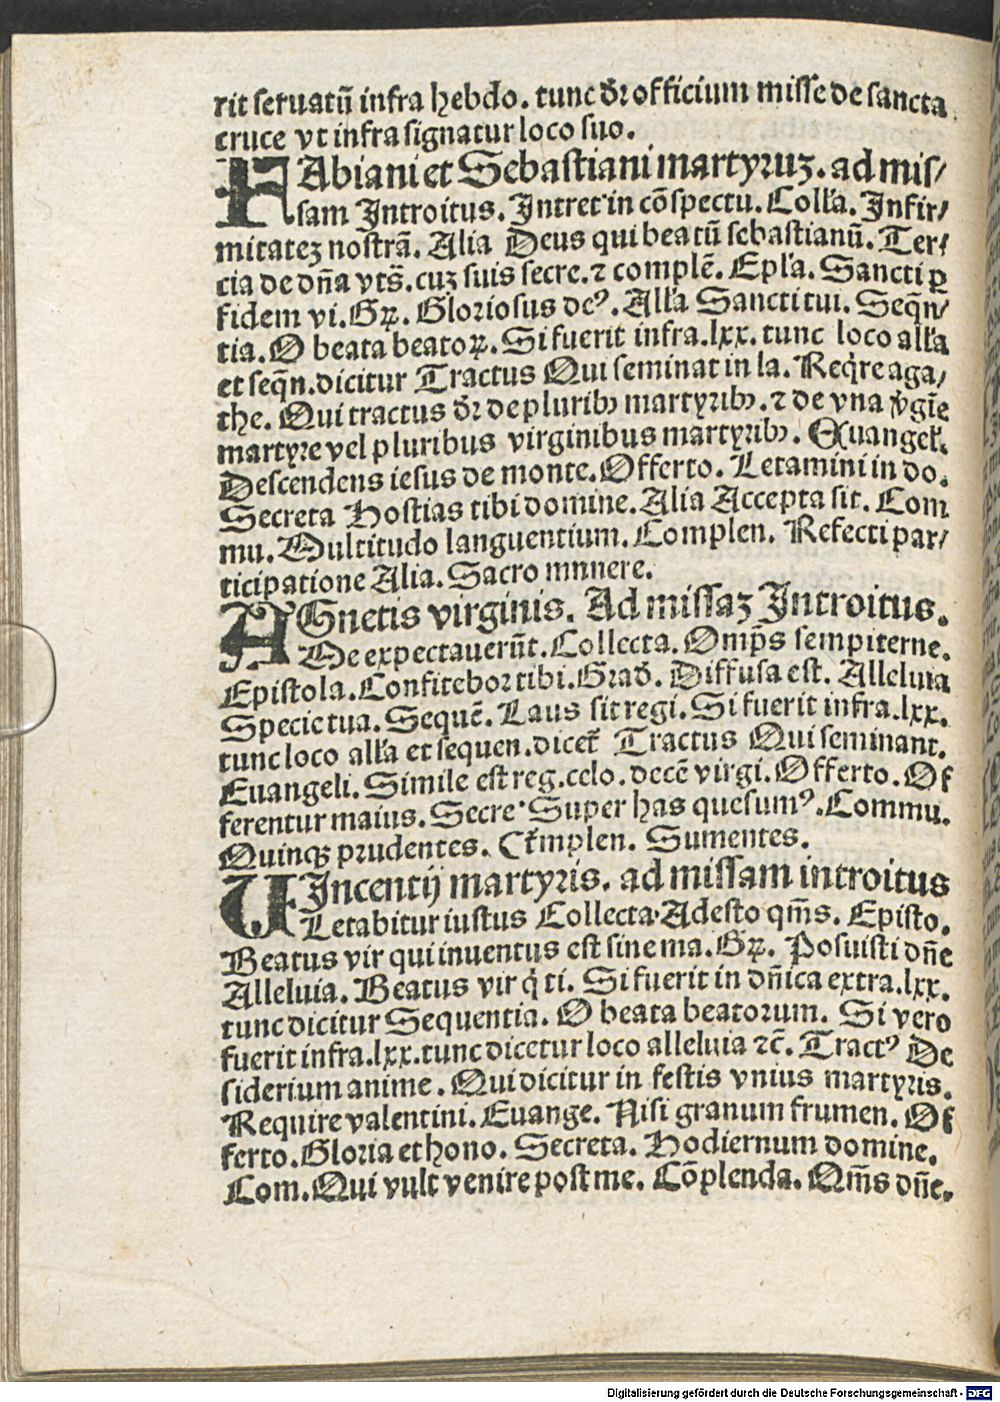 rit seruatū infra hebdo. tunc dr̄ officium misse de sancta
cruce vt infra signatur loco suo.
FAbiani et Sebastiani martyruꝫ. ad mis/
sam Introitus. Intret in cōspectu. Coll'a. Infir/
mitateꝫ nostrā. Alia Deus qui beatū sebastianū. Ter/
cia de dn̄a vts̄. cuꝫ suis secre. ⁊ complē. Ep'la. Sancti ꝑ
fidem vi. Gꝝ. Gloriosus de⁹. All'a Sancti tui. Seq̄n/
tia. O beata beatoꝝ. Si fuerit infra .lxx. tunc loco all'a
et seq̄n. dicitur Tractus Qui seminat in la. Req̄re aga/
the. Qui tractus dr̄ de pluribꝫ martyribꝫ. ⁊ de vna v̄gīe
martyre vel pluribus virginibus martyribꝫ. Euangel'.
Descendens iesus de monte. Offerto. Letamini in do.
Secreta Hostias tibi domine. Alia Accepta sit. Com
mu. Multitudo languentium. Complen. Refecti par/
ticipatione Alia. Sacro mnnere.
AGnetis virginis. Ad missaꝫ Introitus.
Me expectauerūt. Collecta. Omp̄s sempiterne.
Epistola. Confitebor tibi. Grad̄. Diffusa est. Alleluia
Specie tua. Sequē. Laus sit regi. Si fuerit infra .lxx.
tunc loco all'a et sequen. dicet̄ Tractus Qui seminant.
Euangeli. Simile est reg. celo. decē virgi. Offerto. Of
ferentur maius. Secre. Super has quesum⁹. Commu.
Quinqꝫ prudentes. Cōmplen. Sumentes.
VIncentij martyris. ad missam introitus
Letabitur iustus Collecta. Adesto qm̄s. Episto.
Beatus vir qui inuentus est sine ma. Gꝝ. Posuisti dn̄e
Alleluia. Beatus vir q̇ ti. Si fuerit in dn̄ica extra .lxx.
tunc dicitur Sequentia. O beata beatorum. Si vero
fuerit infra .lxx. tunc dicetur loco alleluia ⁊c̄. Tract⁹ De
siderium anime. Qui dicitur in festis vnius martyris.
Require valentini. Euange. Nisi granum frumen. Of
ferto. Gloria et hono. Secreta. Hodiernum domine.
Com. Qui vult venire post me. Cōplenda. Qm̄s dn̄e.
Digitalisierung gefördert durch die Deutsche Forschungsgemeinschaft - DFG